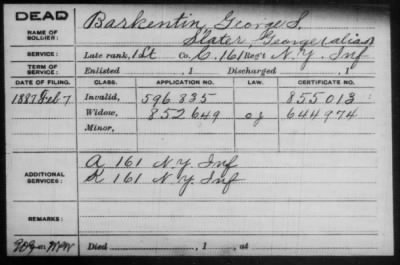 DEAD
NAME OF SOLDIER: Barkentin, George S.
Slater, George (alias)
SERVICE: Late rank, 1st Co. C, 161 Reg't N.Y. Inf
TERM OF SERVICE: Enlisted , 1 Discharged , 1
DATE OF FILING. CLASS. APPLICATION NO. LAW. CERTIFICATE NO.
1887 Feb 7 Invalid, 596835 855013
Widow, 852649 644974
Minor,
ADDITIONAL SERVICES: A 161 N.Y. Inf
K 161 N.Y. Inf
REMARKS:
Died , 1 , at